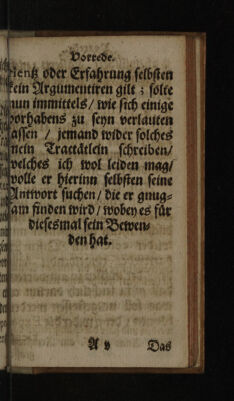 Vorrede.
rientz oder Erfahrung selbsten
kein Argumentiren gilt; solte
nun immittels/ wie sich einige
vorhabens zu seyn verlauten
lassen / jemand wider solches
mein Tractätlein schreiben/
welches ich wol leiden mag/
wolle er hierinn selbsten seine
Antwort suchen/ die er gnug-
sam finden wird/ wobey es für
diesesmal sein Bewen-
den hat.
A v Das